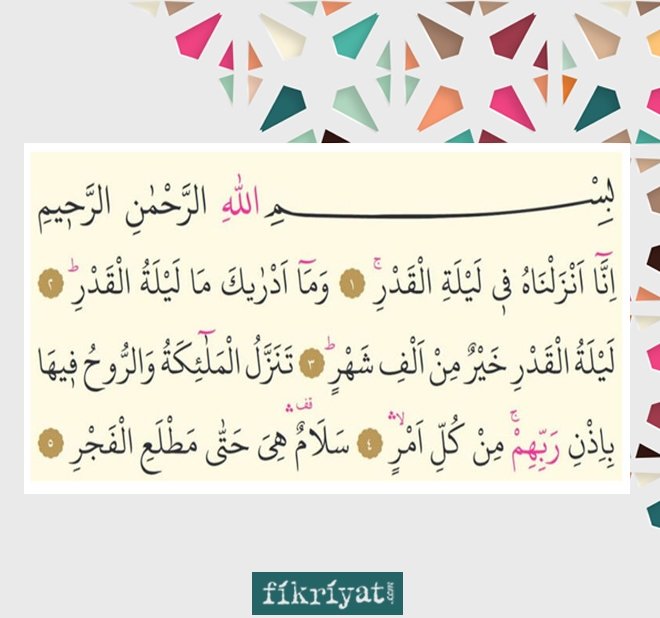 بِسْمِ اللّٰهِ الرَّحْمٰنِ الرَّح۪يمِ
اِنَّٓا اَنْزَلْنَاهُ ف۪ي لَيْلَةِ الْقَدْرِۚ ﴿١﴾ وَمَٓا اَدْرٰيكَ مَا لَيْلَةُ الْقَدْرِۜ ﴿٢﴾
لَيْلَةُ الْقَدْرِ خَيْرٌ مِنْ اَلْفِ شَهْرٍۜ ﴿٣﴾ تَنَزَّلُ الْمَلٰٓئِكَةُ وَالرُّوحُ ف۪يهَا
بِاِذْنِ رَبِّهِمْۚ مِنْ كُلِّ اَمْرٍۙۛ ﴿٤﴾ سَلَامٌ۠ۛ هِيَ حَتّٰى مَطْلَعِ الْفَجْرِ ﴿٥﴾
fikriyat.com